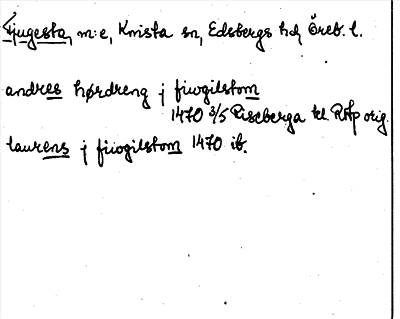 Fjugesta, m:e, Knista sn, Edsbergs hd, Öreb. l.
andres hørdreng j fiwgilstom
1470 3/5 Riseberga kl RAp orig.
laurens j fiwogilstom 1470 ib.